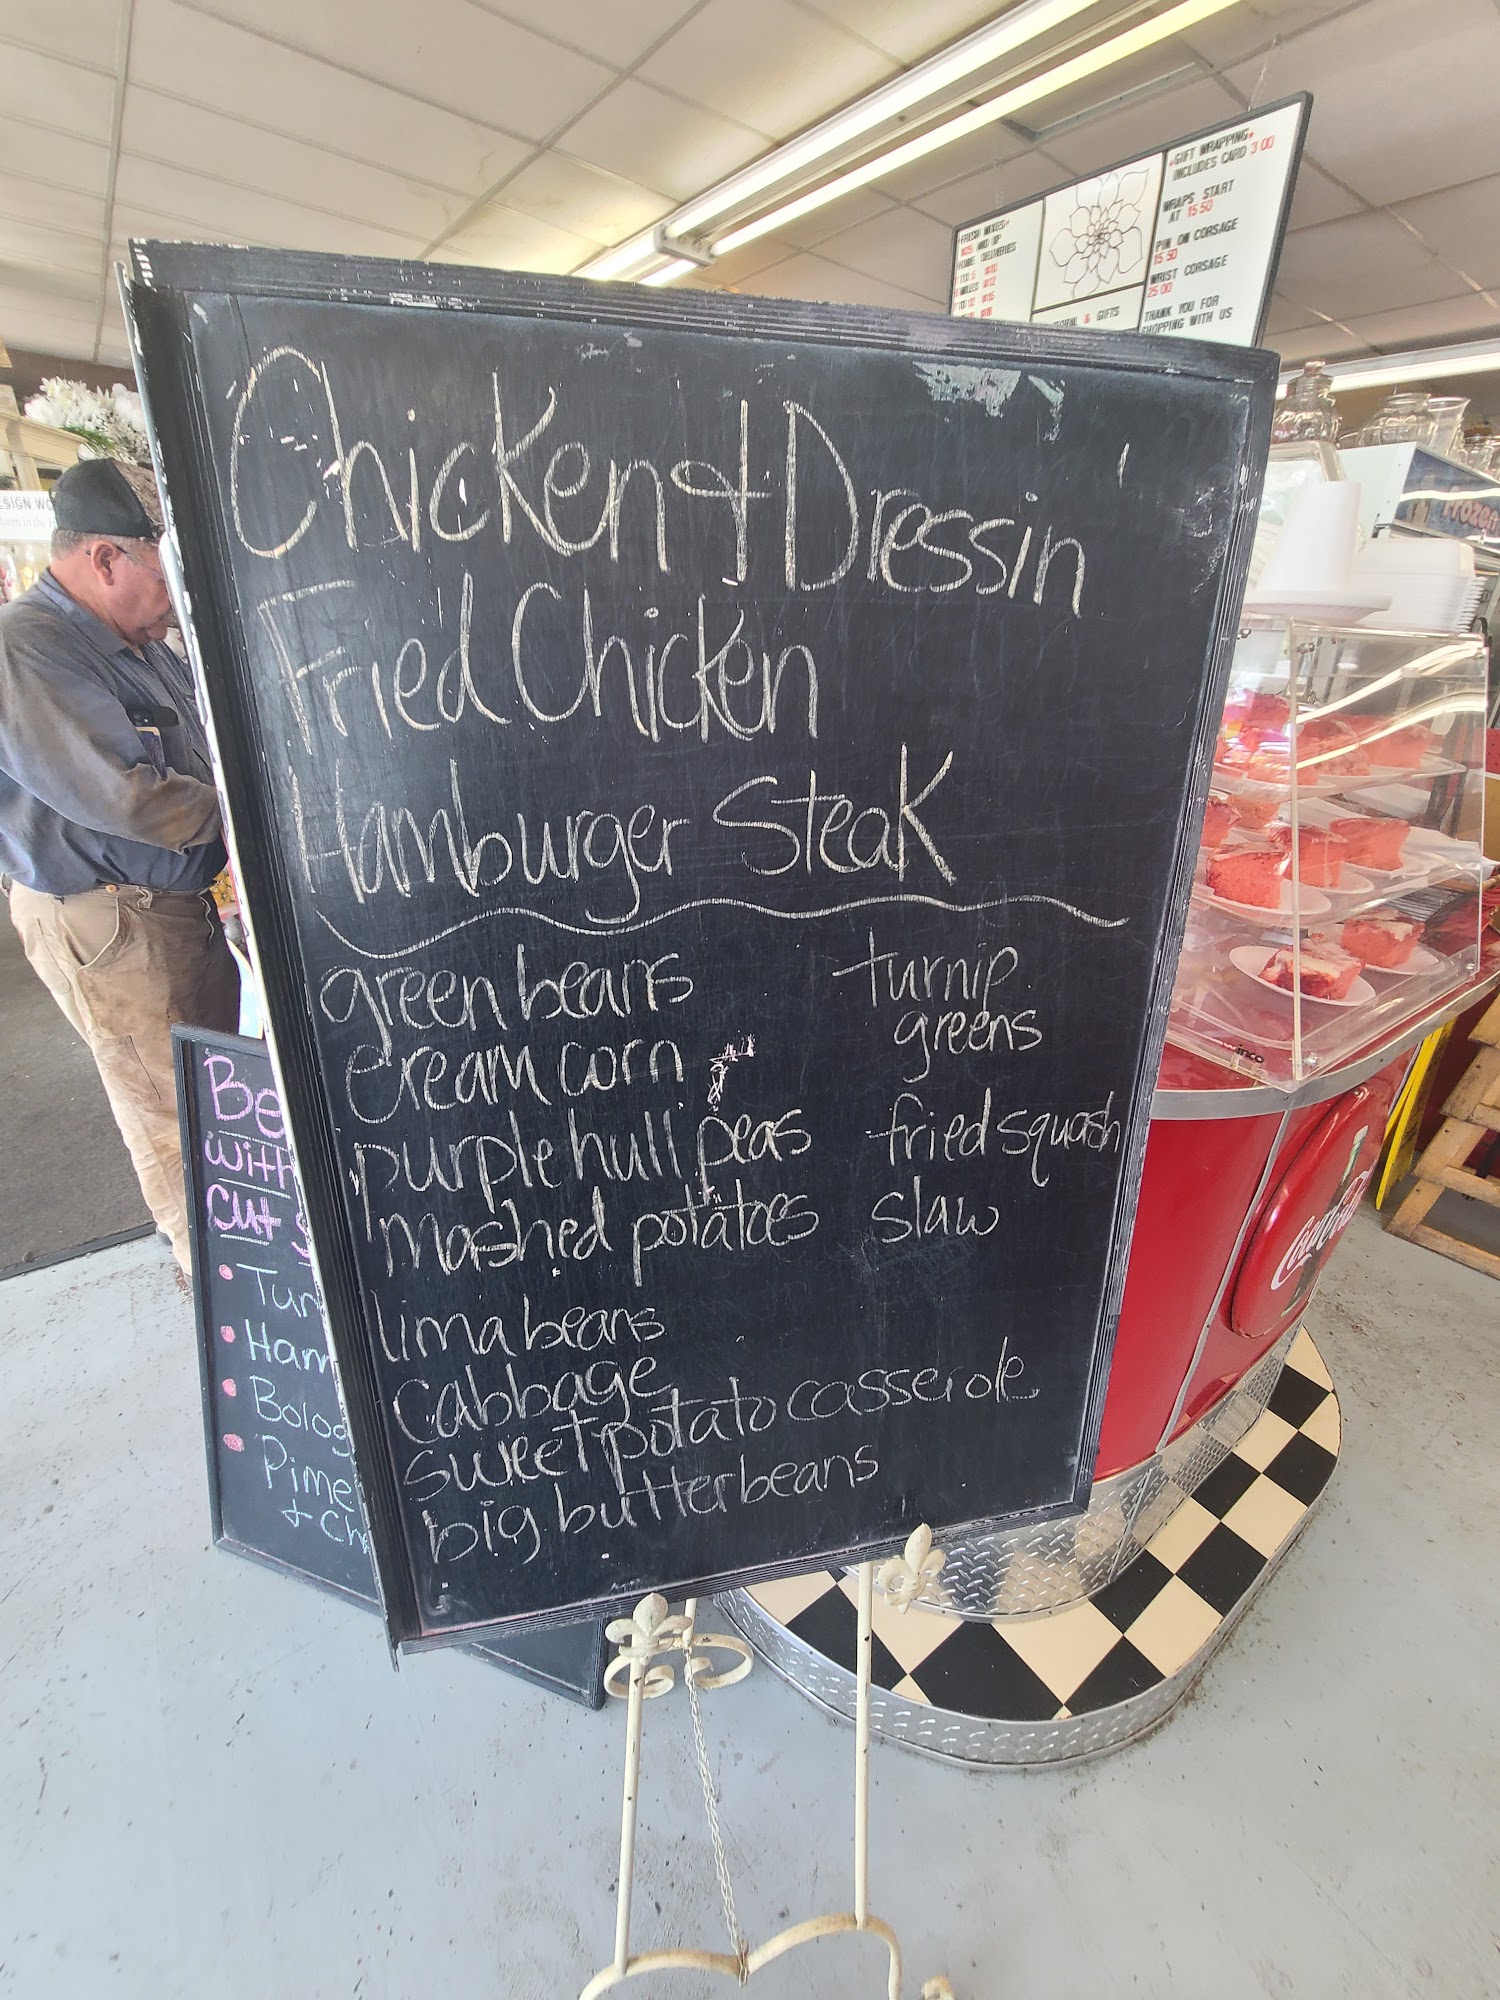 Chicken & Dressin'
Fried Chicken
Hamburger Steak
green beans
cream corn
purple hull peas
mashed potatoes
lima beans
cabbage
sweet potato casserole
big butter beans
turnip
greens
fried squash
slaw
Be
with
cut s
Tur
Ham
Bolog
Pime
+ Ch
*GIFT WRAPPING*
INCLUDES CARD 3 00
WRAPS START
AT 15 50
PIN ON CORSAGE
15 50
WRIST CORSAGE
25 00
THANK YOU FOR
SHOPPING WITH US
FRESH MIXES*
AND UP
HOME DELIVERIES
& GIFTS
ESIGN WO
winco
Coca-Cola